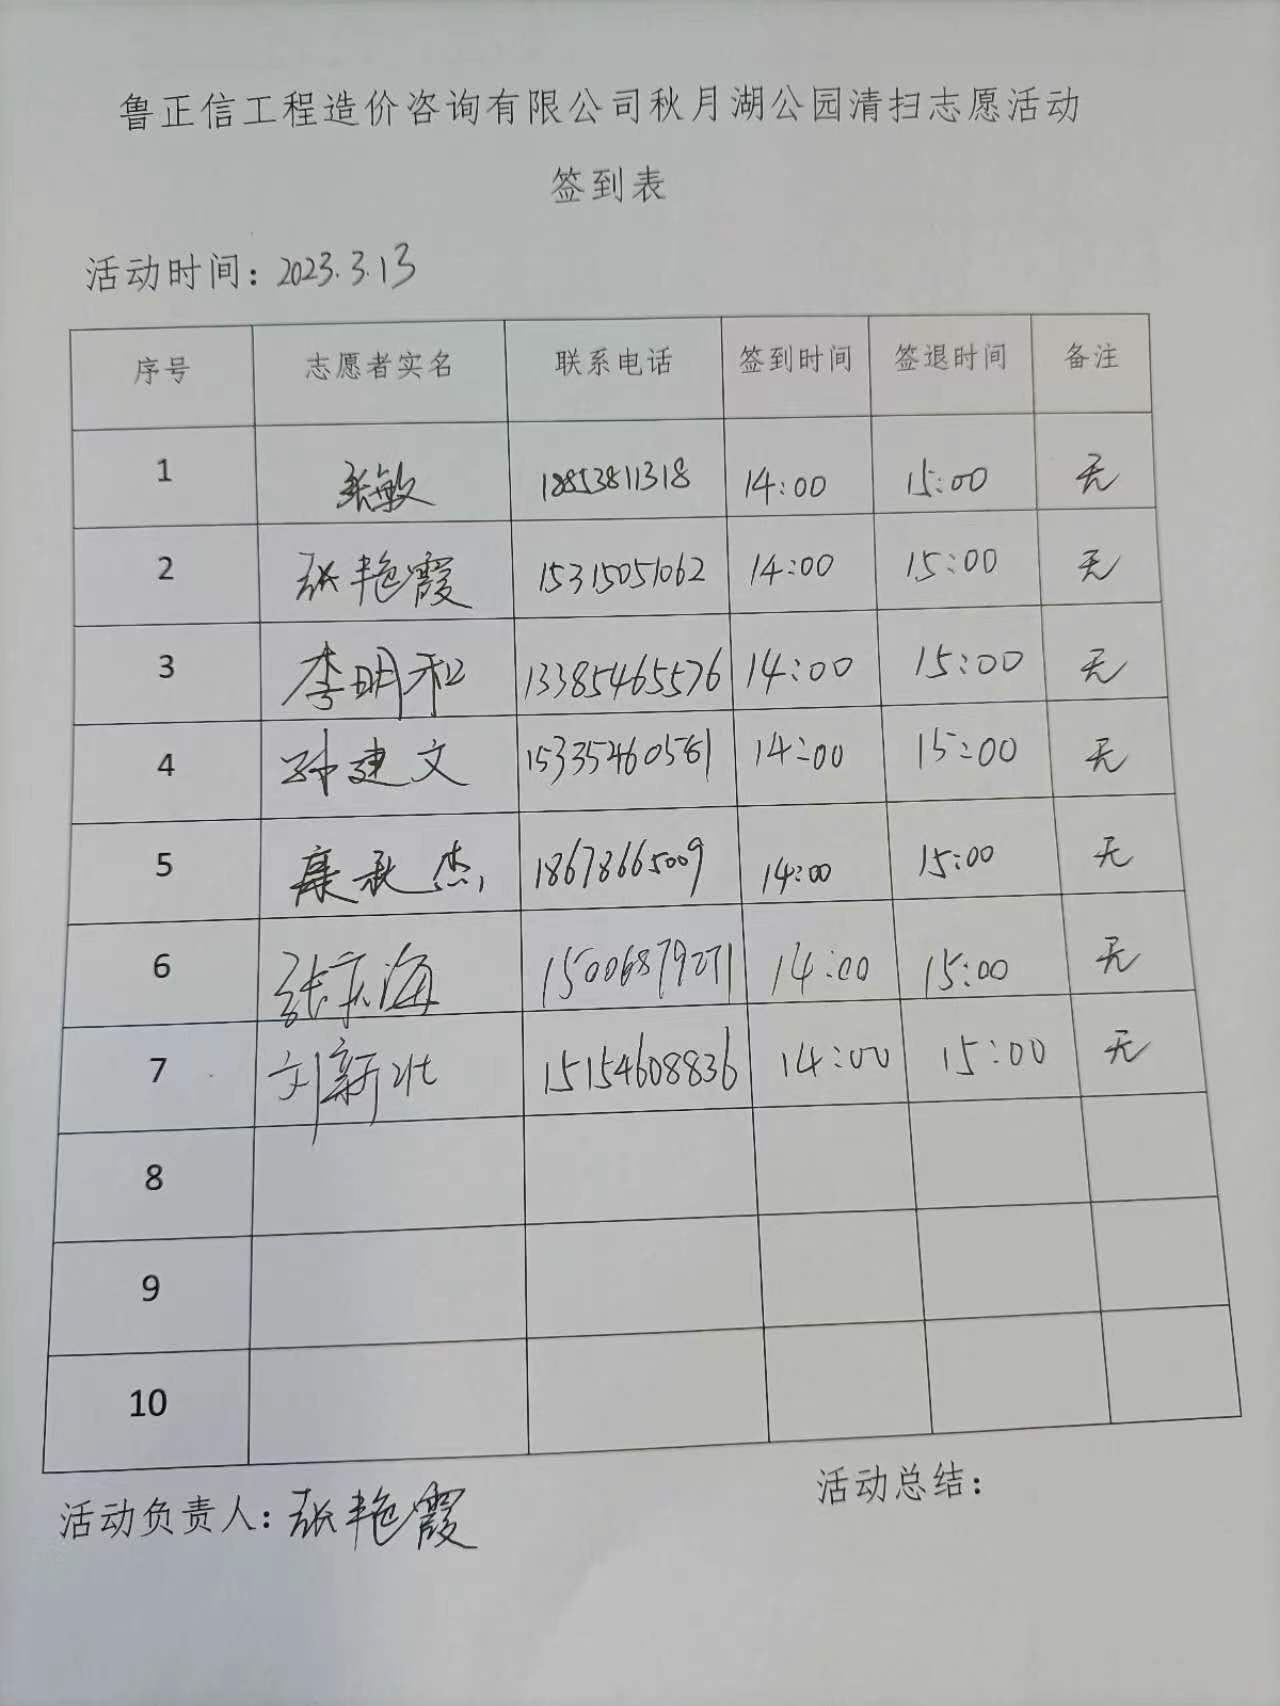 鲁正信工程造价咨询有限公司秋月湖公园清扫志愿活动
签到表
活动时间：2023.3.13
序号 志愿者实名 联系电话 签到时间 签退时间 备注
1 张敏 18853811318 14:00 15:00 无
2 张艳霞 15315051062 14:00 15:00 无
3 李明和 13385465576 14:00 15:00 无
4 孙建文 15335460561 14:00 15:00 无
5 秋杰 18678665009 14:00 15:00 无
6 张庆海 15006879271 14:00 15:00 无
7 刘新壮 15154608836 14:00 15:00 无
8
9
10
活动负责人：张艳霞 活动总结：